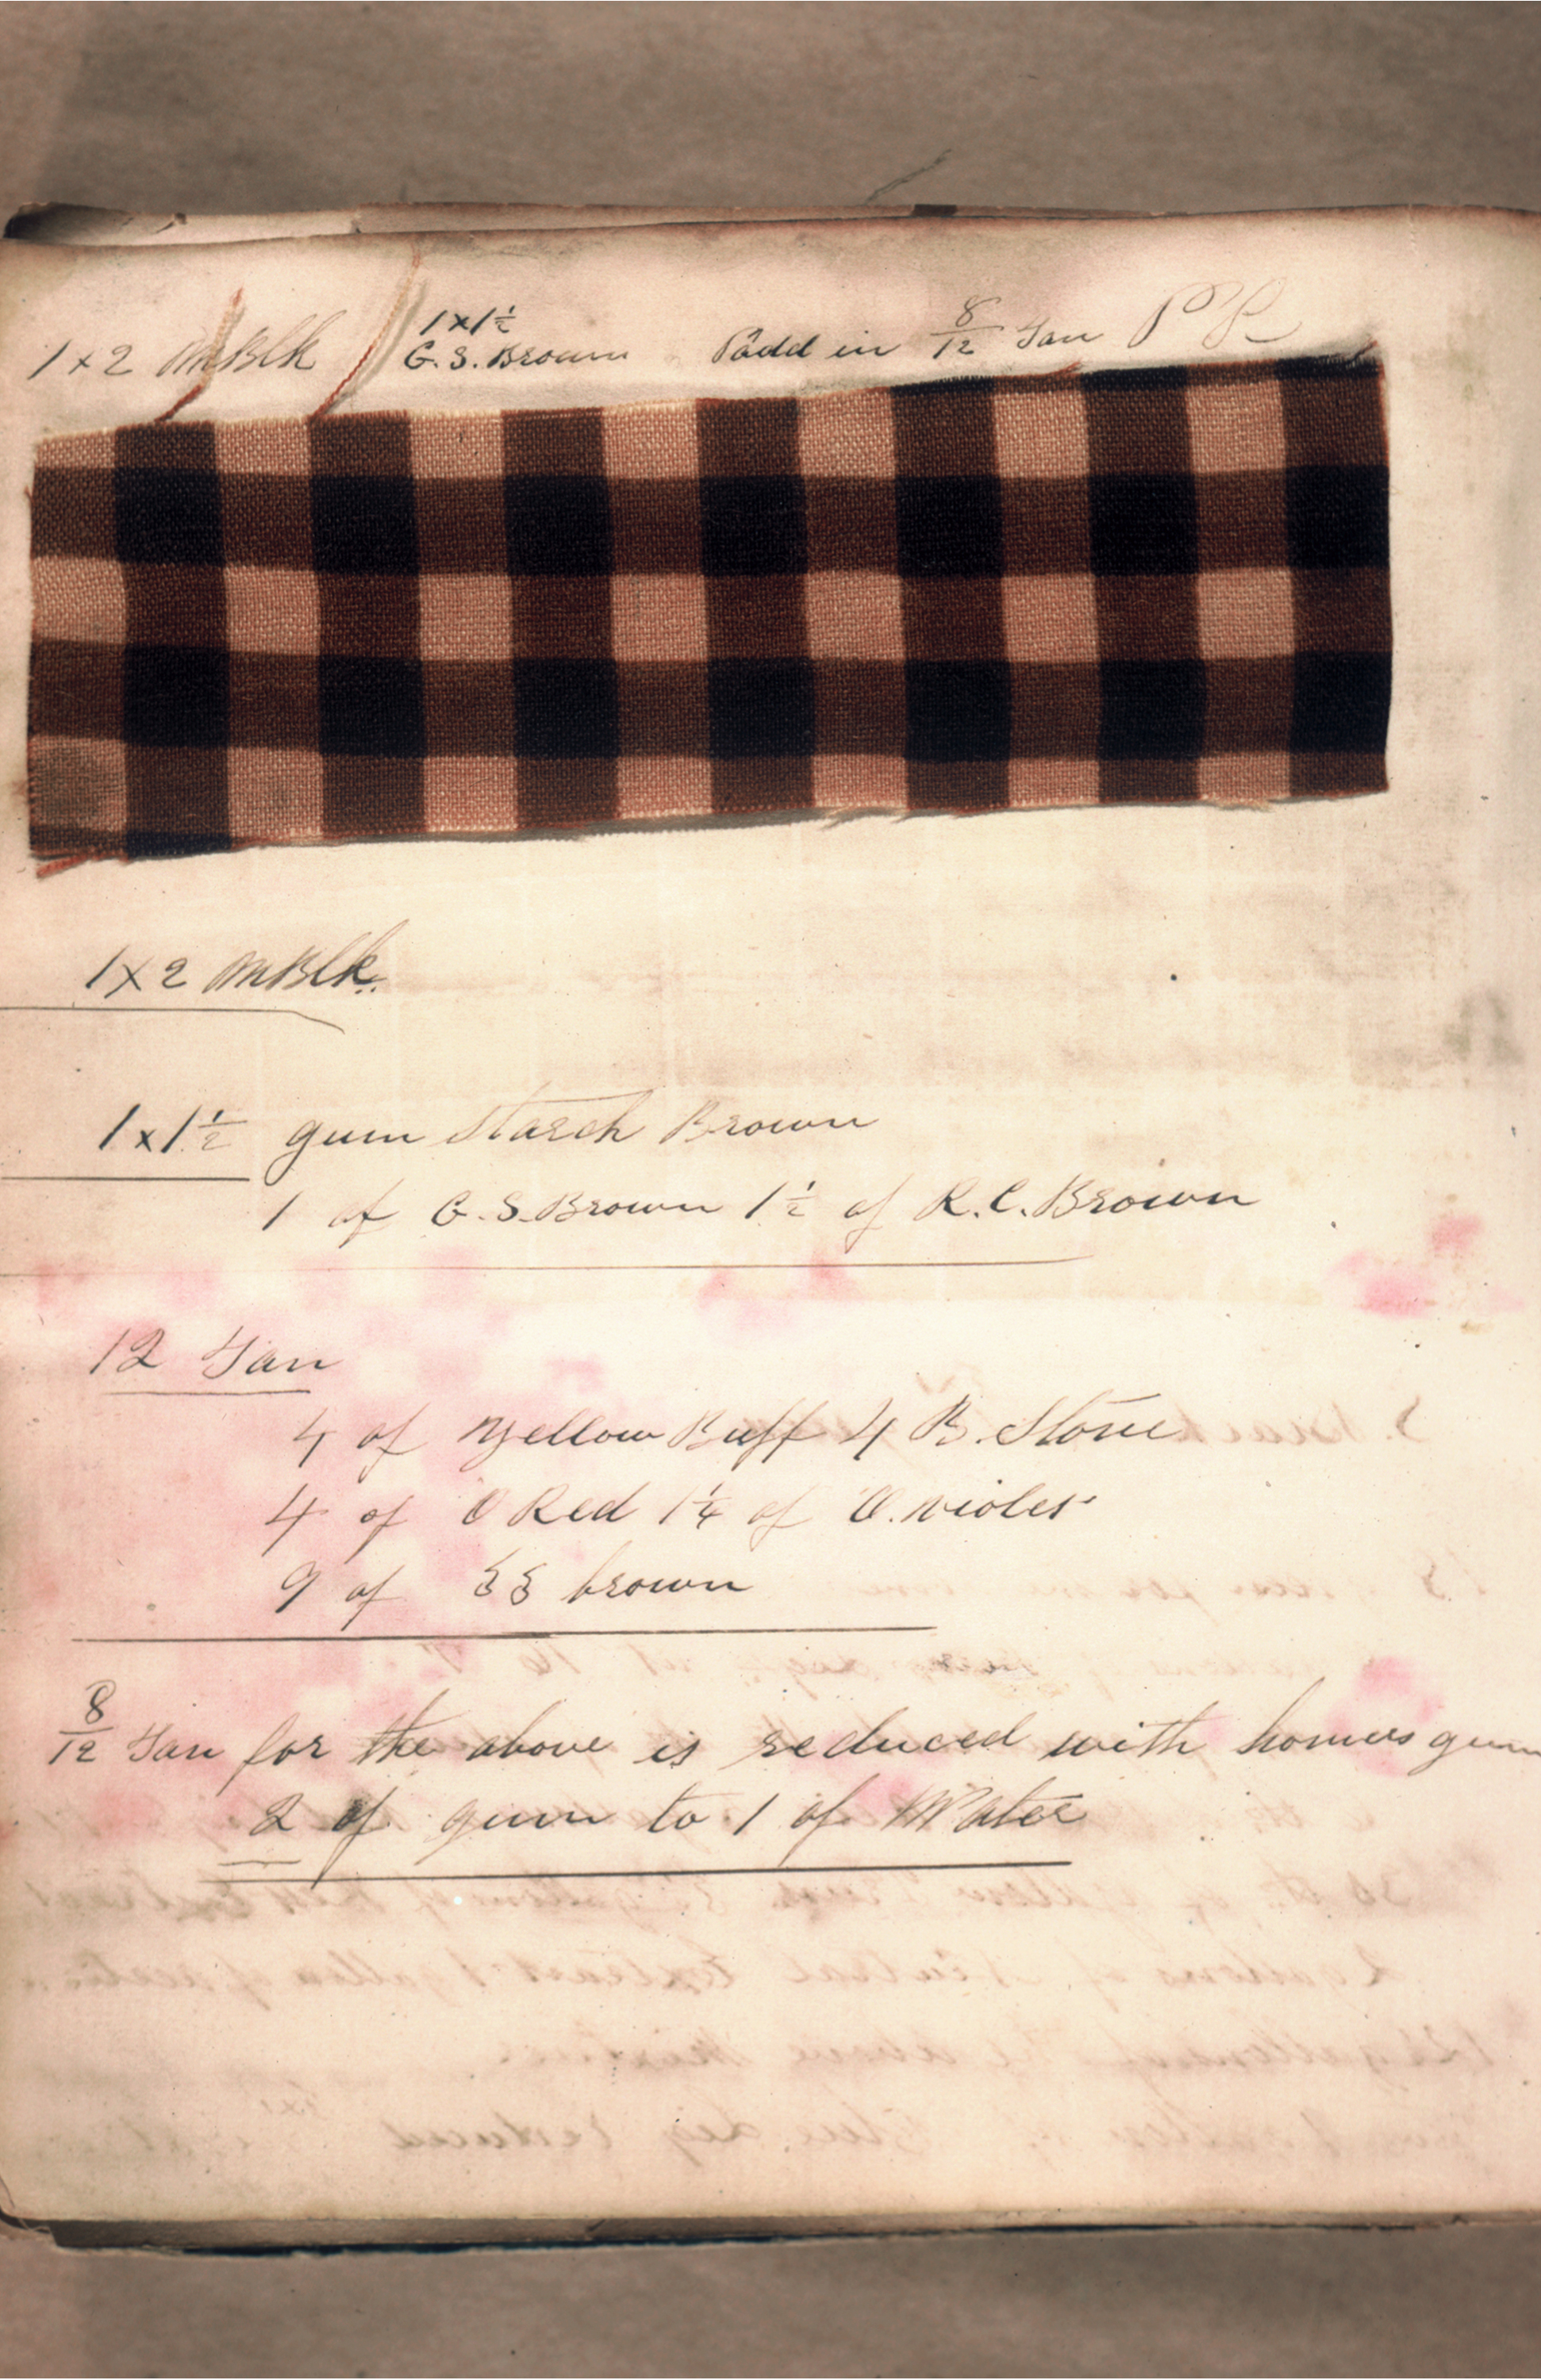 1 x 2 M Blk
1 x 1½
G. S. Brown Padd in 8/12 Tan P P
1 x 2 M Blk.
1 x 1½ gum Starch Brown
1 of G. S. Brown 1½ of R. C. Brown
12 Tan
4 of Yellow Buff 4 B. Stone
4 of O Red 1¼ of O. violet
9 of SS brown
8/12 Tan for the above is reduced with homers gum
2 of gum to 1 of Water